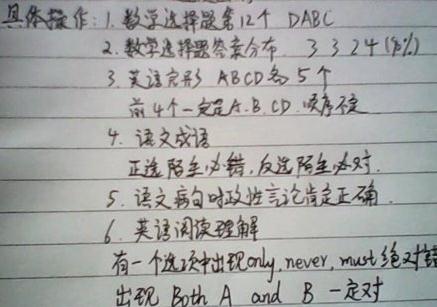 具体操作:1. 数学选择题第12个 DABC
2. 数学选择题答案分布. 3 3 2 4 (90%)
3. 英语完形 ABCD各5个
前4个一定是A.B.CD.顺序不定
4. 语文成语
正选陌生必错,反选陌生必对.
5. 语文病句时政性言论肯定正确.
6. 英语阅读理解
有一个选项中出现only, never, must绝对错
出现 Both A and B 一定对